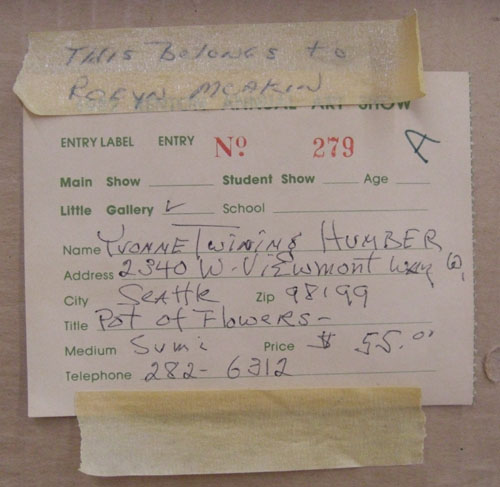 This Belongs to
Robyn McAkin
ANNUAL ART SHOW
ENTRY LABEL ENTRY No 279 A
Main Show Student Show Age
Little Gallery ✓ School
Name Yvonne Twining Humber
Address 2340 W. Viewmont Way W.
City Seattle Zip 98199
Title Pot of Flowers-
Medium Sumi Price $ 55.00
Telephone 282-6312